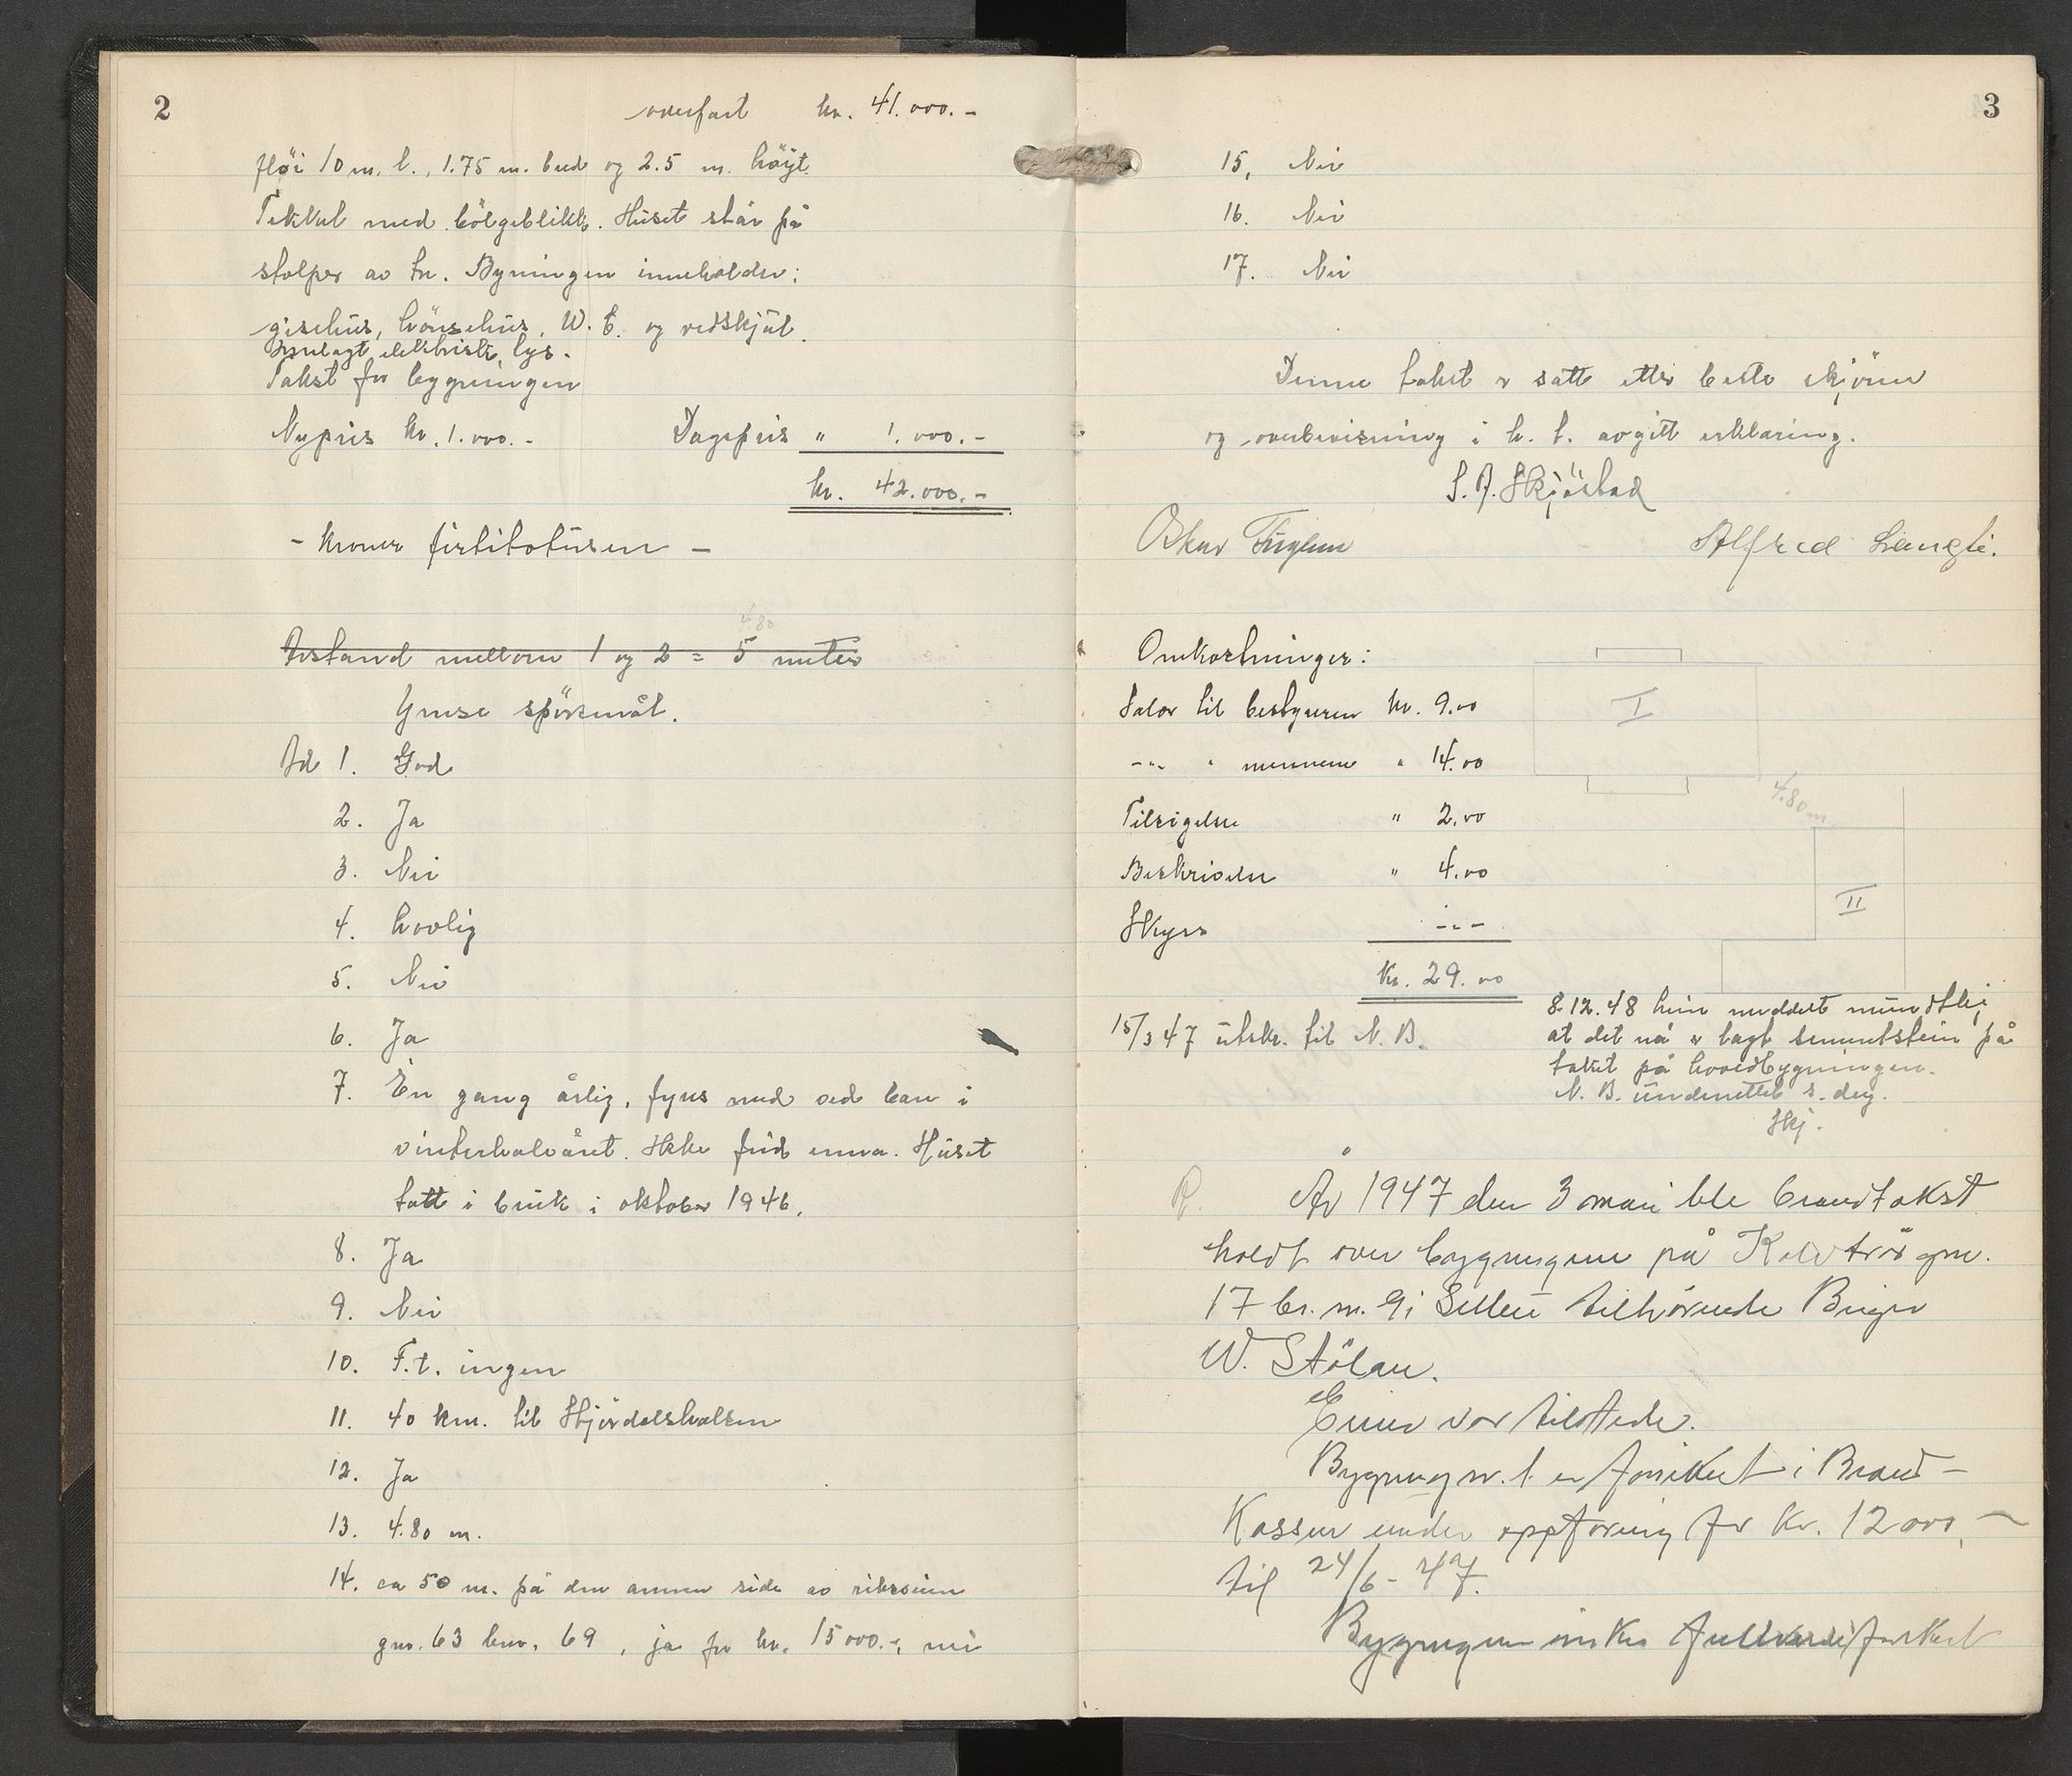 2
overført kr. 41.000.-
fløi 10 m. l., 1.75 m. bred og 2.5 m. höyt.
Tekket med bölgeblikk. Huset står på
stolper av tre. Bygningen inneholder:
grisehus, hönsehus, W. C. og vedskjul.
Innlagt elektrisk lys.
Takst for bygningen
Nypris kr. 1.000.- Dagspris " 1.000.-
kr. 42.000.-
- kronerførtitotusen -
4.80
Avstand mellom 1 og 2 = 5 meter
Ymse spörsmål.
Ad 1. God
2. Ja
3. Nei
4. Årlig
5. Nei
6. Ja
7. En gang årlig, fyres med ved bare i
vinterhalvåret. Ikke feid ennu. Huset
tatt i bruk i oktober 1946.
8. Ja
9. Nei
10. F.t. ingen
11. 40 km. til
12. Ja
13. 4.80 m.
14. ca 50 m. på den annen side av riksveien
gnr. 63 bnr. 69, ja for kr. 15000.-, nei
3
15. Nei
16. Nei
17. Nei
Denne takst er satt etter beste skjönn
og overbevisning i h. t. avgitt erklæring.
S. A. Skjöstad
Oskar Fuglem Alfred Langli.
Omkostninger:
Salær til bestyreren kr. 9.00
-"- " mennene " 14.00
Tilsigelse " 2.00
Beskrivelse " 4.00
Skyss -.-
Kr. 29.00
I
4.80 m
II
15/3 47 utskr. til N. B.
8.12.48 hun meddelt mundtlig
at det nå er lagt sementstein på
taket på hovedbygningen.
N. B. underrettet s. dag.
Skj.
R. År 1947 den 3 mars ble brandtakst
holdt over bygningene på gnr.
17 br. nr. 9 i Selbu tilhörende Birger
W. Stölan.
Eieren var tilstede.
Bygning nr. 1 er forsikret i Brand-
Kassen under oppföring for Kr. 12000,-
til 24/6-47.
Bygningene önskes fullverdiforsikret